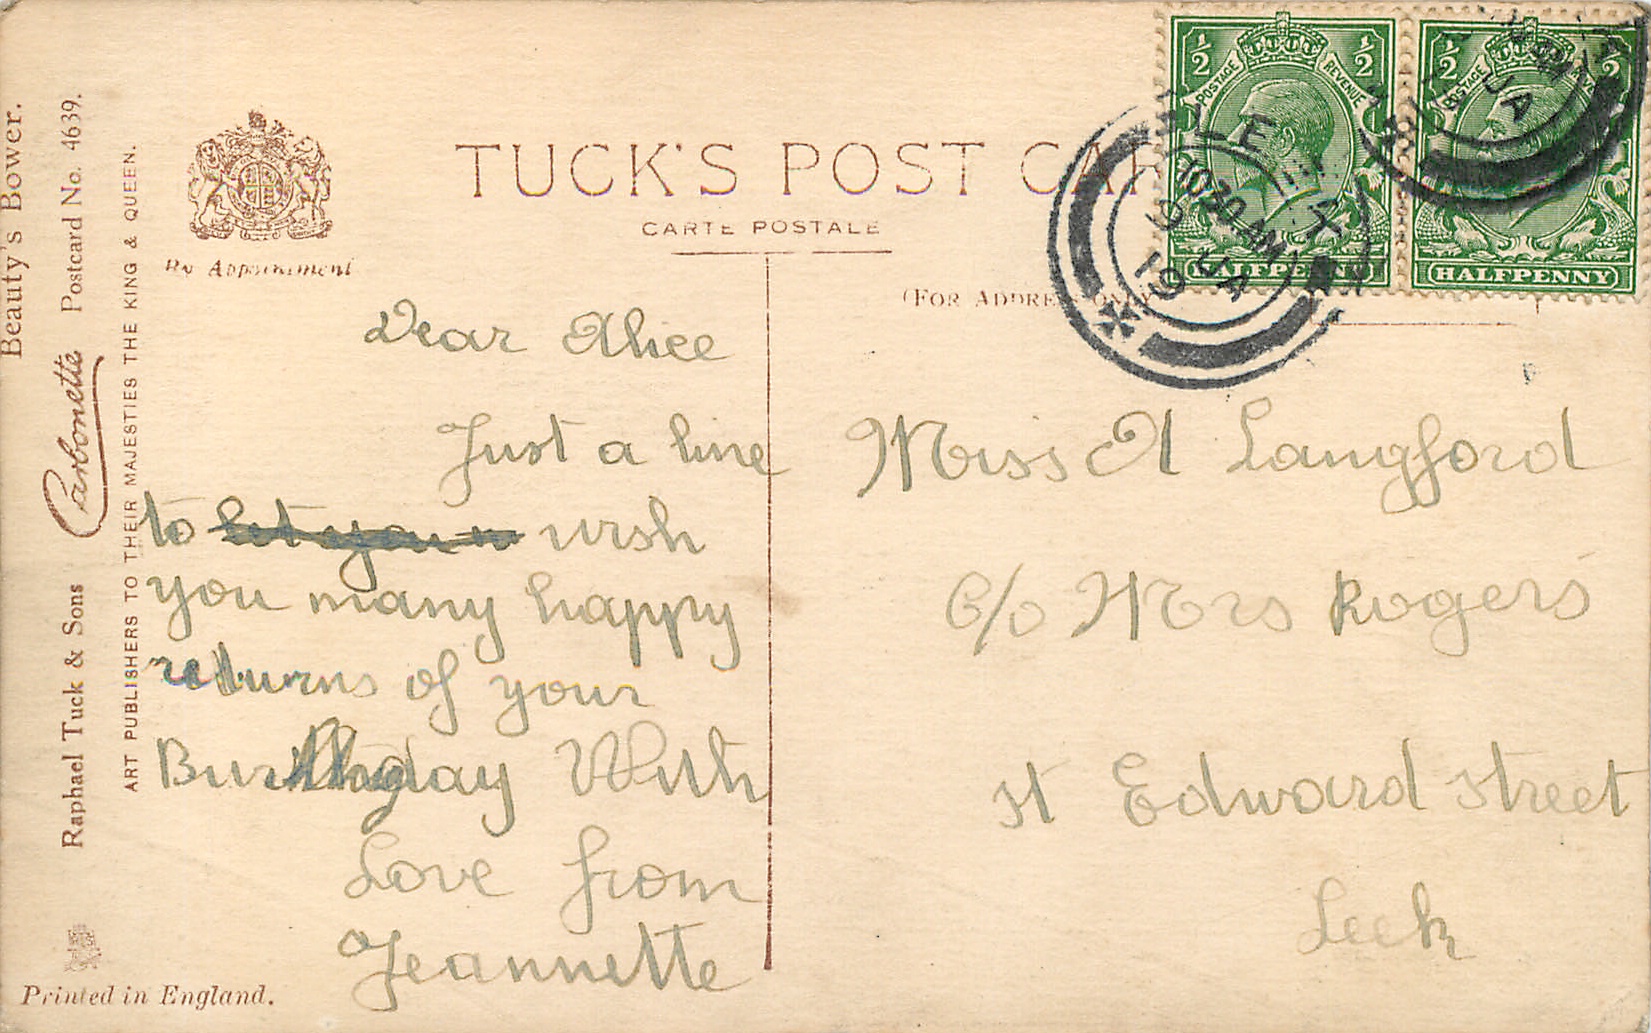 Beauty's Bower.
Raphael Tuck & Sons Carbonette Postcard No. 4639.
ART PUBLISHERS TO THEIR MAJESTIES THE KING & QUEEN.
Printed in England.
By Appointment
TUCK'S POST CAR
CARTE POSTALE
(FOR ADDRESS ONLY
½ ½
POSTAGE REVENUE
HALFPENNY
½ ½
POSTAGE
HALFPENNY
10 30 AM
19
Dear Alice
Just a line
to ~~let you~~ wish
you many happy
returns of your
Burthday With
Love from
Jeannette
Miss A Langford
C/o Mrs Rogers
St Edward Street
Leek